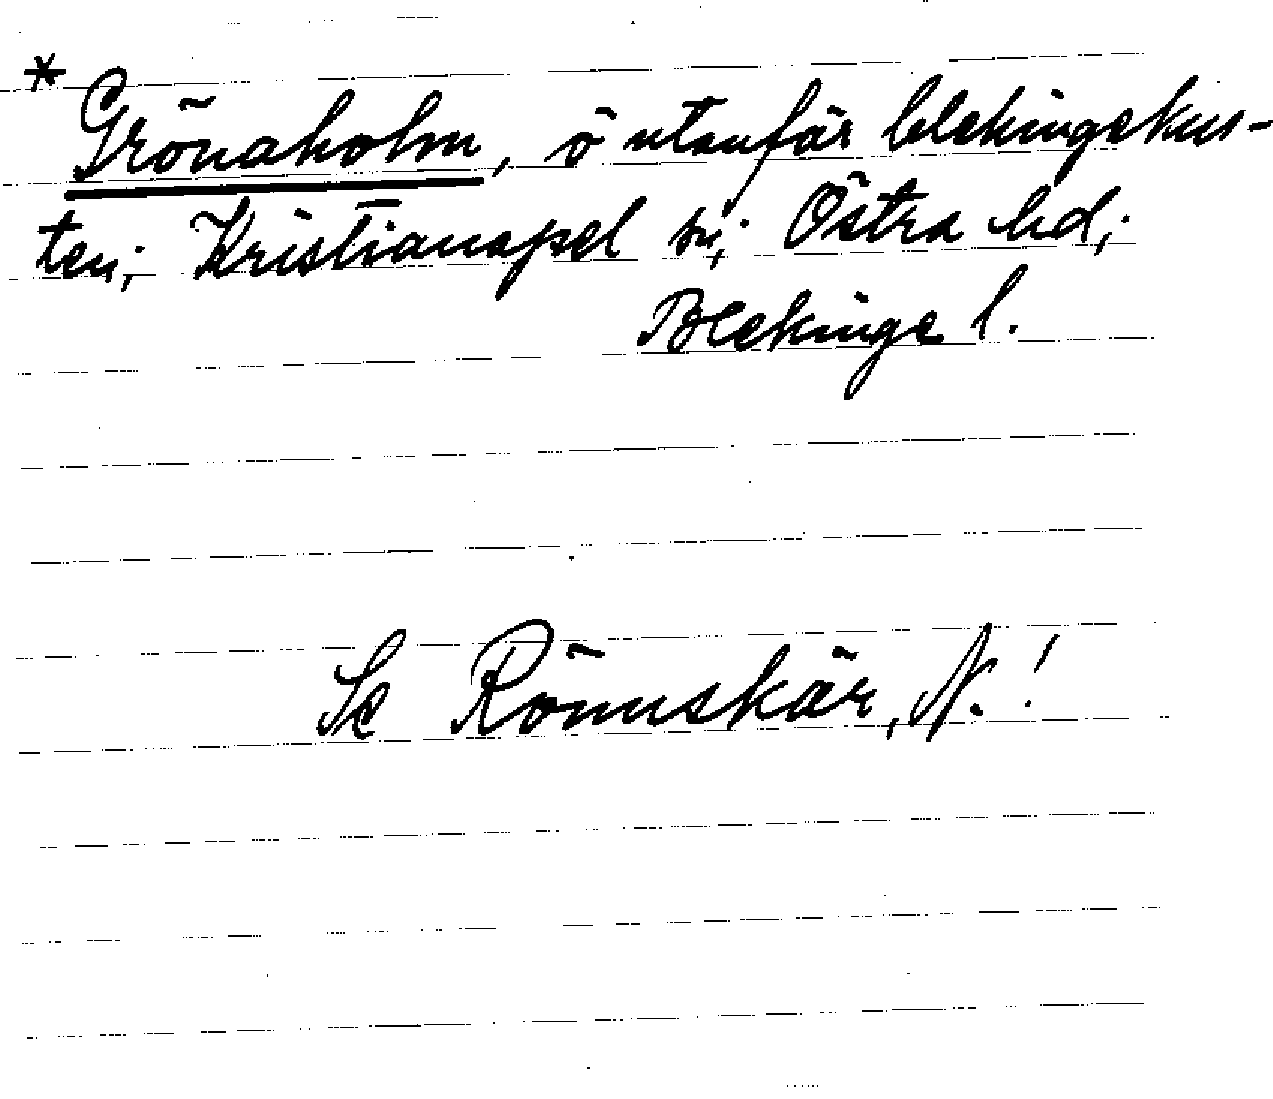 * Grönaholm, ö utanför blekingskus-
ten; Kristianopel sn; Östra hd;
Blekinge l.
Se Rönnskär, N.!